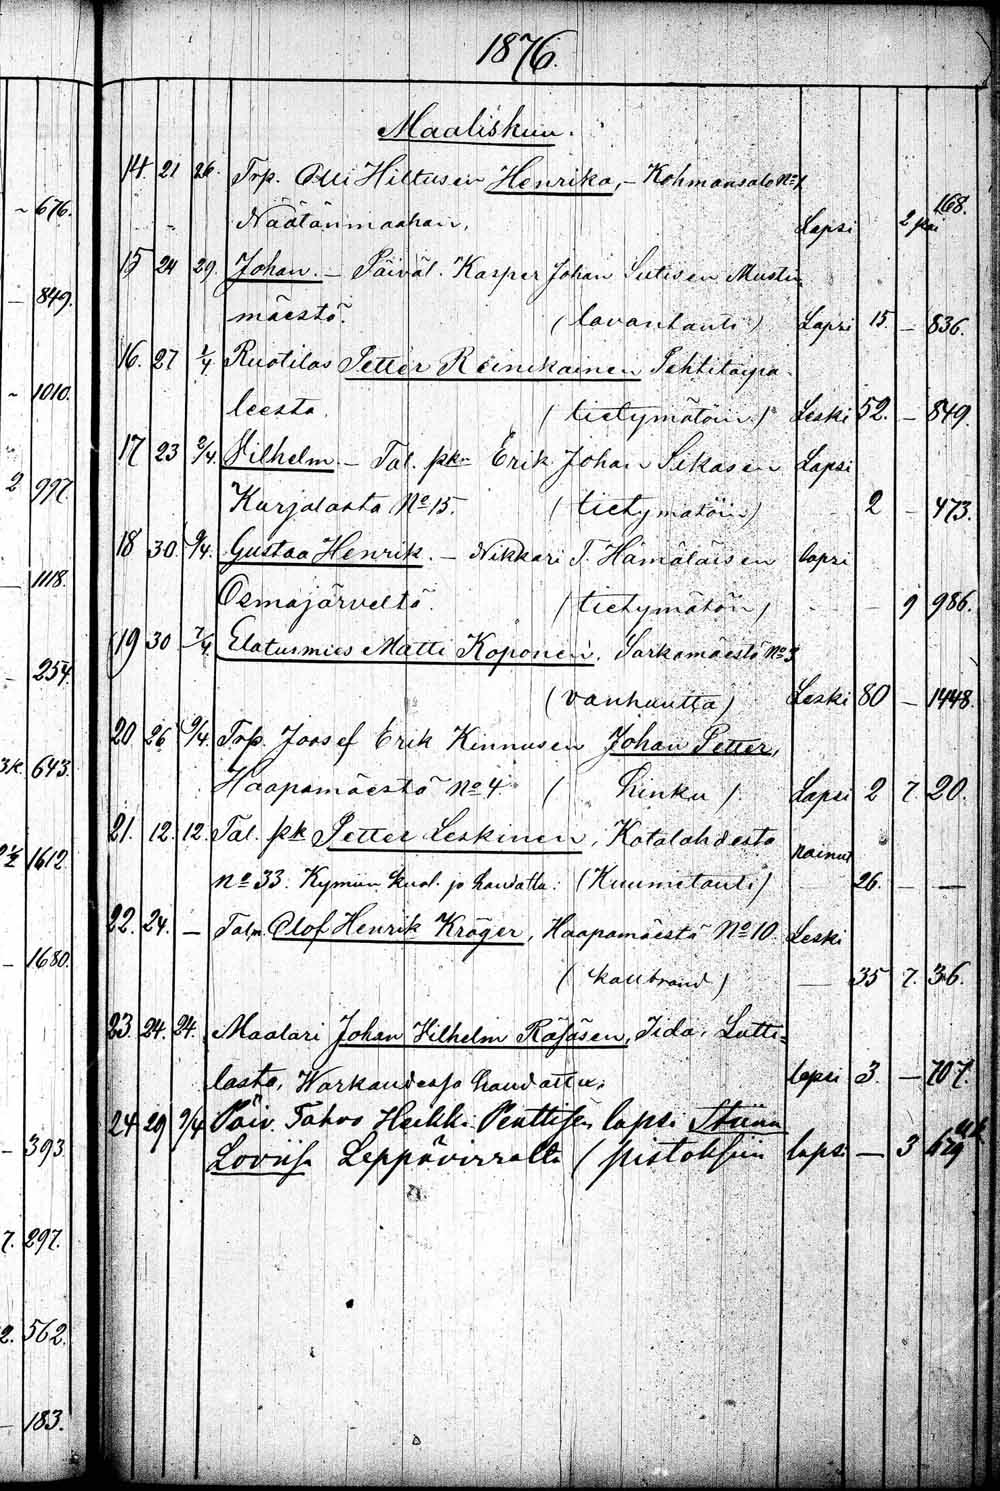 1876.
Maaliskuu.
14. 21 26. Trp. Olli Hiltusen Henrika, – Kohmansalo No 1
676. Näätänmaahan, Lapsi 2 168.
15 24 29. Johan. – Päiväl. Kasper Johan Sutisen Mustin
849. mäestö. (lavantauti) Lapsi 15. – 836.
16. 27 1/4 Ruotilas Petter Reinikainen
1010. leesta. (tietymätöin) Leski 52. – 849.
17 23 2/4. Vilhelm. – Tal. pkn Erik Johan Sikasen Lapsi
2 997 Kurjalasta No 15. (tietymätöin) 2 – 473.
18 30. 9/4. Gustaa Henrik. – Nikkari T. Hämäläisen lapsi
1118. Osmajärveltö. (tietymätön) 9 986.
19 30 7/4. Elatusmies Matti Koponen. Sarkamäestö No 3
254. (vanhuutta) Leski 80 – 1448.
20 26 9/4. Trp. Joosef Erik Kinnusen Johan Petter,
643. Haapamäestö No 4. (hinku) Lapsi 2 7. 20.
21. 12. 12. Tal. pk Petter Leskinen, Kotalahdesta nainut
1612. No 33. Kymiin kuol. ja haudattu. (Kuumetauti) 26. – –
22. 24. – Talm. Olof Henrik Kröger, Haapamäestö No 10. Leski
1680. (kallbrand) – 35 7. 36.
23. 24. 24. Maalari Johan Vilhelm Räsäsen, Iida, Lutti=
lasta, Warkaudessa haudattu. lapsi 3. – 707.
24 29 9/4 Päiv. Tahvo Heikki Penttisen lapsi Stiina
393. Loviisa Leppävirralta (pistoksiin lapsi – 3 679
7. 297.
2. 562.
183.